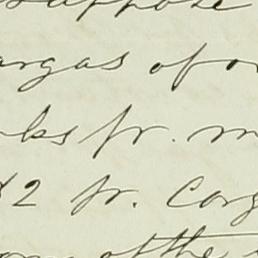 suppose
argas of
ks fr. m
2 fr. Carg
of the